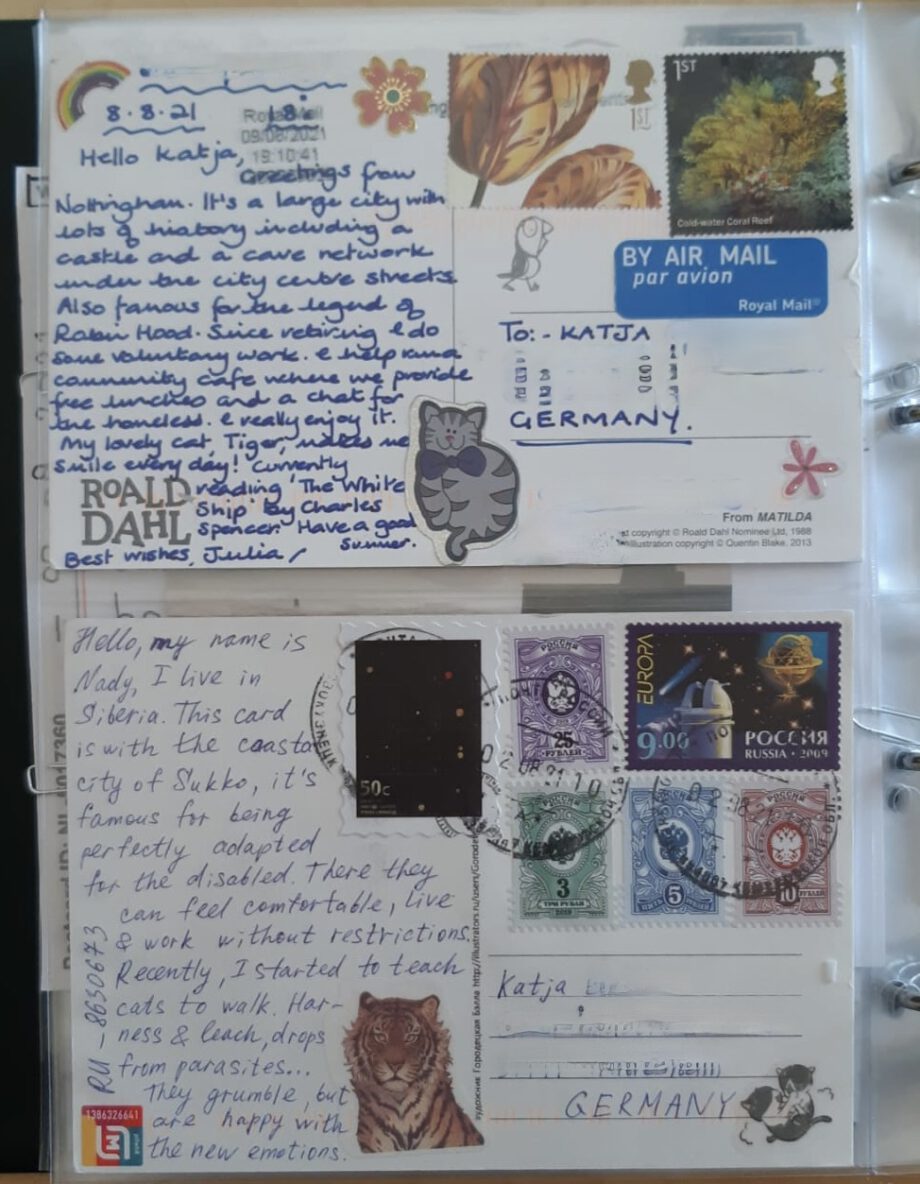 8.8.21
Royal Mail
09/08/2021
19:10:41
Hello Katja,
Greetings from
Nottingham. It's a large city with
lots of history including a
castle and a cave network
under the city centre streets.
Also famous for the legend of
Robin Hood. Since retiring I do
some voluntary work. I help run a
community cafe where we provide
free lunches and a chat for
the homeless. I really enjoy it.
My lovely cat, Tiger, makes me
smile every day! Currently
reading 'The White
Ship' by Charles
Spencer. Have a good
summer.
Best wishes, Julia
ROALD
DAHL
1ST
1ST
Cold-water Coral Reef
BY AIR MAIL
par avion
Royal Mail®
To:- KATJA
GERMANY.
From MATILDA
copyright © Roald Dahl Nominee Ltd, 1988
illustration copyright © Quentin Blake, 2013
Hello, my name is
Nady, I live in
Siberia. This card
is with the coastal
city of Sukko, it's
famous for being
perfectly adapted
for the disabled. There they
can feel comfortable, live
& work without restrictions.
Recently, I started to teach
cats to walk. Har-
ness & leach, drops
from parasites...
They grumble, but
are happy with
the new emotions.
RU 8630673
1386326641
50c
РОССИЯ
25
РУБЛЕЙ
EUROPA
9.00
РОССИЯ
RUSSIA · 2009
РОССИЯ
3
ТРИ РУБЛЯ
2019
РОССИЯ
5
РОССИЯ
10 РУБЛЕЙ
художник Городецкая Балла http://illustrators.ru/users/
Katja
GERMANY